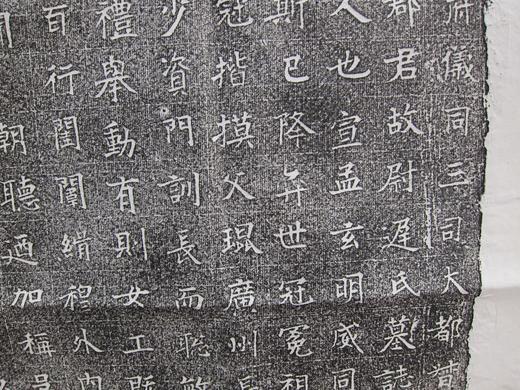 儀同三司大都
郡君故尉遲氏墓誌
人也宣孟玄明威同
斯已降弈世冠冕祖
冠揩摸父琨廣州
少資門訓長而聡敏
禮舉動有則女工
百行閨闈緝穆外内
朝聽迺加稱